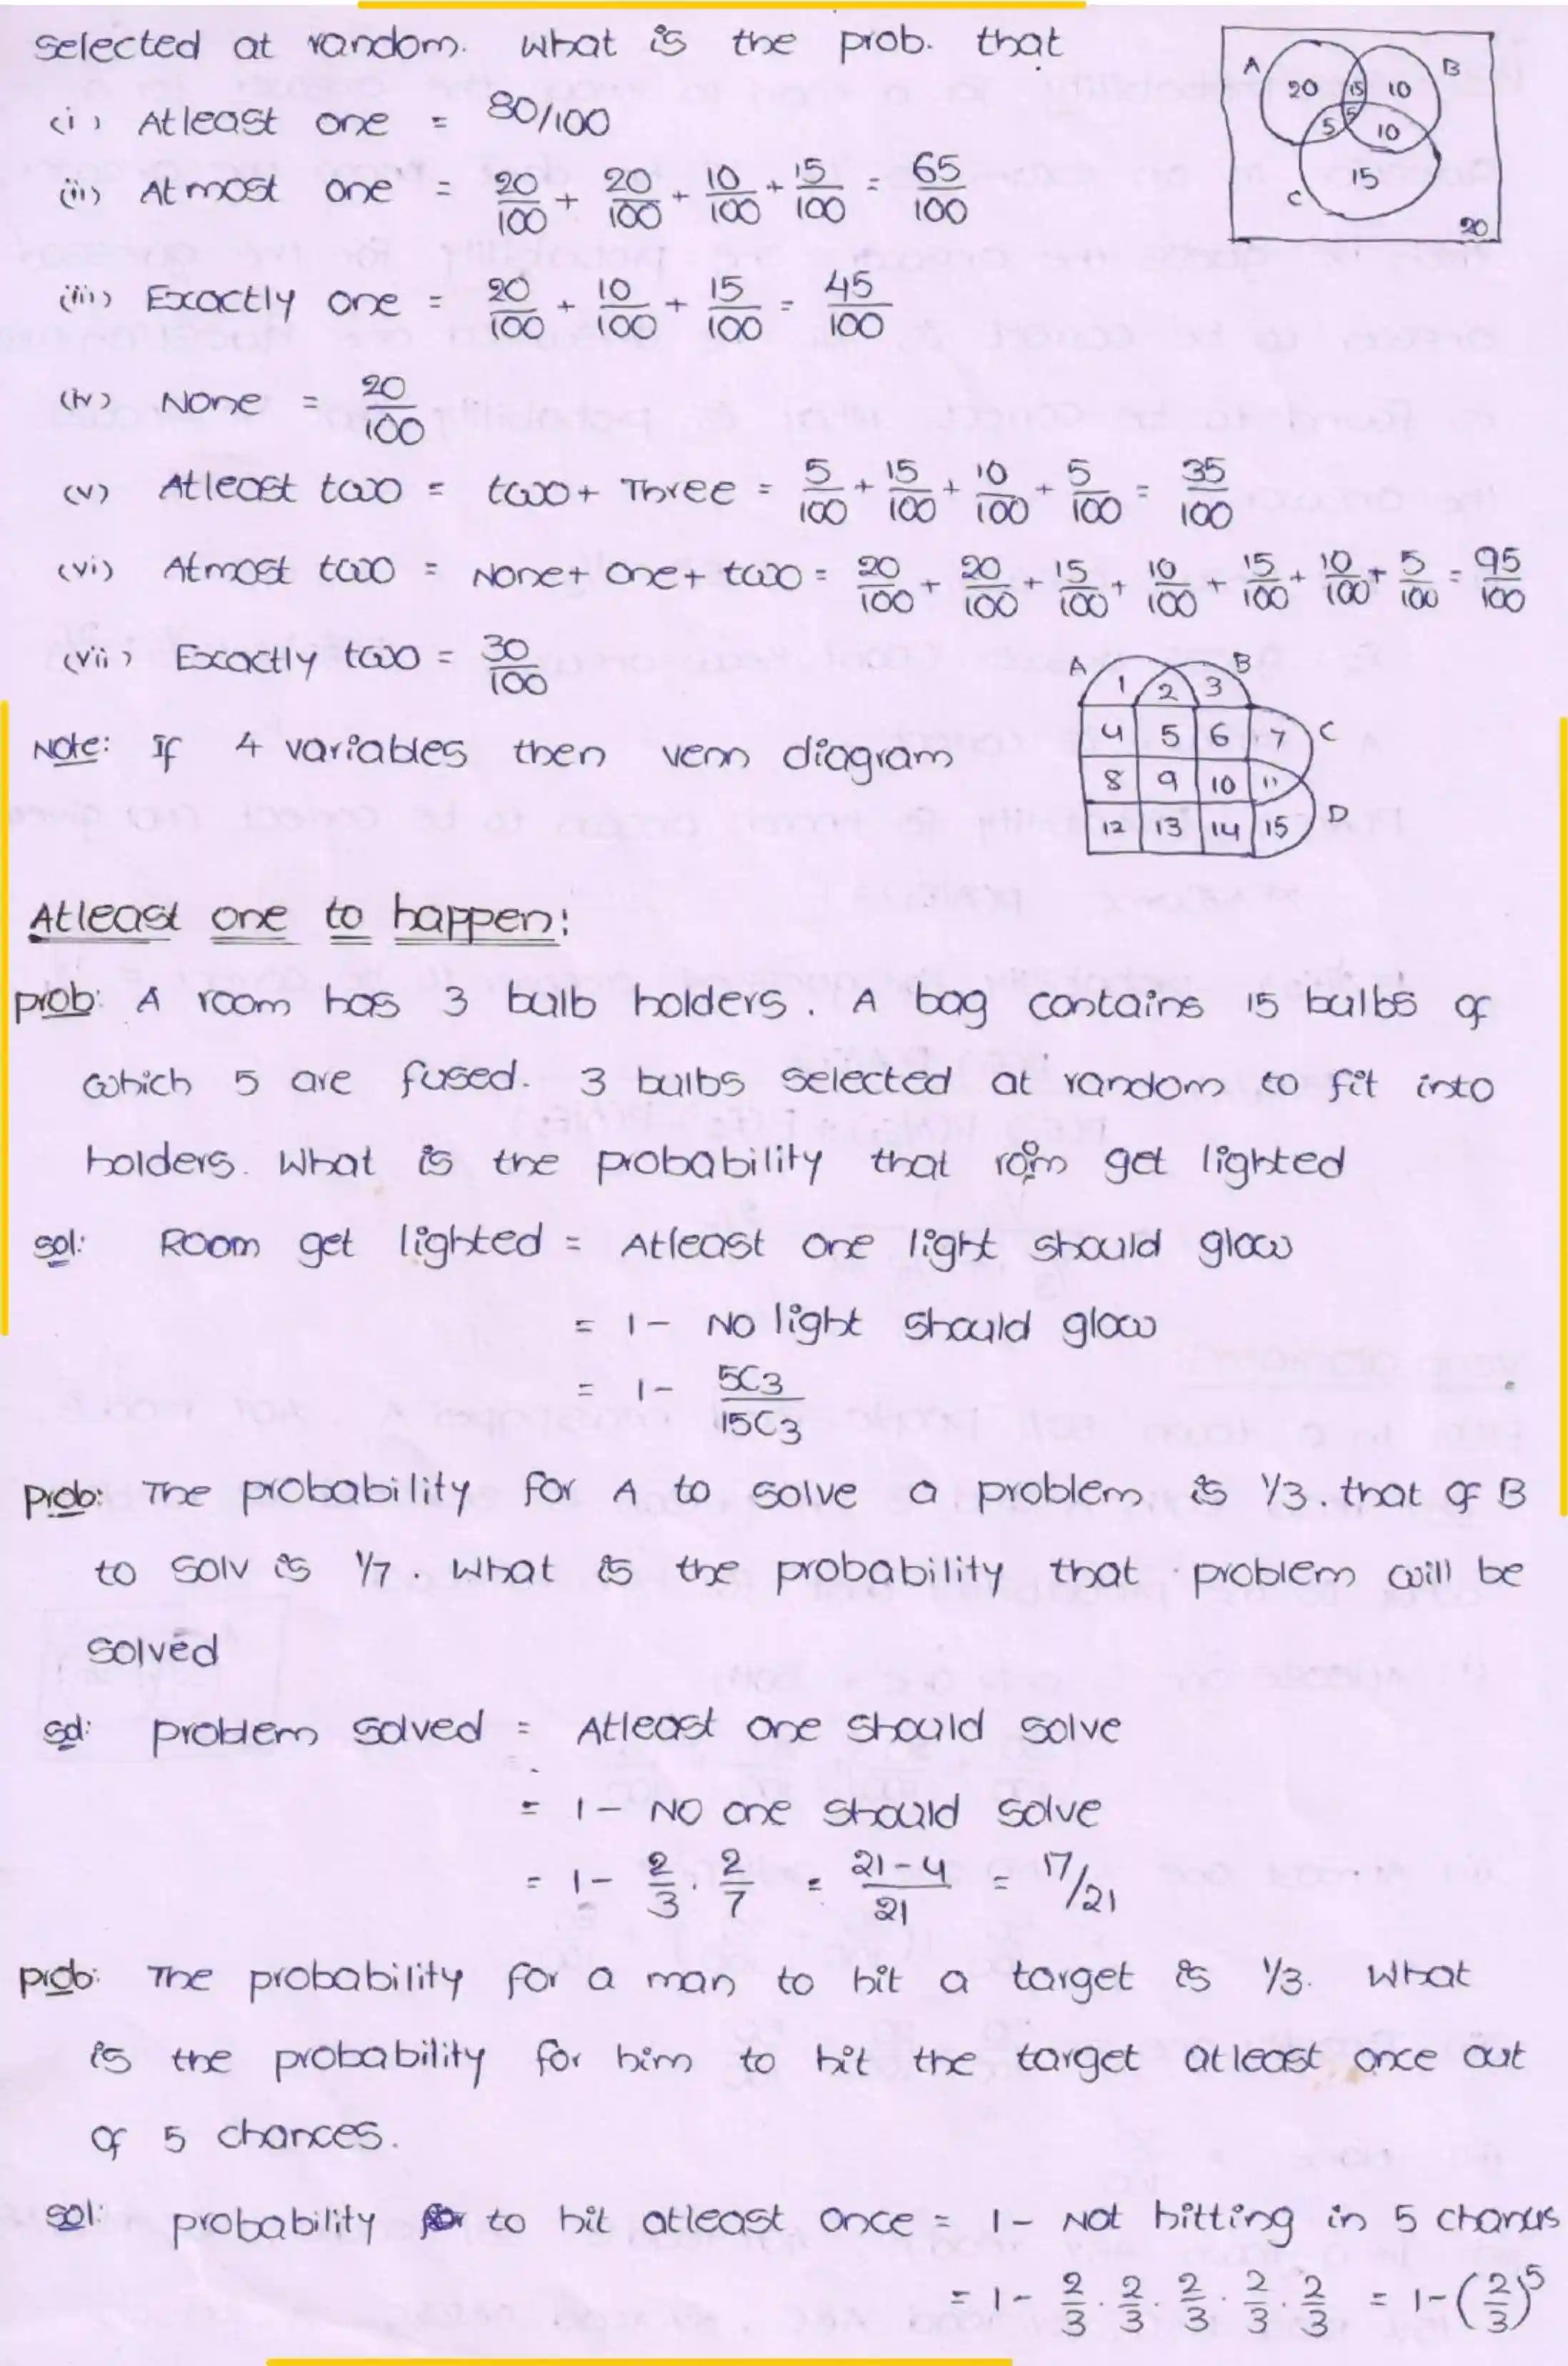 selected at random. What is the prob. that
(i) Atleast one = 80/100
(ii) Atmost one = 20/100 + 20/100 + 10/100 + 15/100 = 65/100
(iii) Exactly one = 20/100 + 10/100 + 15/100 = 45/100
(iv) None = 20/100
A B C 20 15 10 5 5 10 15 20
(v) Atleast two = two + Three = 5/100 + 15/100 + 10/100 + 5/100 = 35/100
(vi) Atmost two = None + one + two = 20/100 + 20/100 + 15/100 + 10/100 + 15/100 + 10/100 + 5/100 = 95/100
(vii) Exactly two = 30/100
Note: If 4 variables then venn diagram
A B
1 2 3
4 5 6 7 C
8 9 10 11
12 13 14 15 D
Atleast one to happen:
prob: A room has 3 bulb holders. A bag contains 15 bulbs of
which 5 are fused. 3 bulbs selected at random to fit into
holders. What is the probability that room get lighted
sol: Room get lighted = Atleast one light should glow
= 1 - No light should glow
= 1 - 5C3/15C3
prob: The probability for A to solve a problem is 1/3. that of B
to solv is 1/7. What is the probability that problem will be
solved
sol: problem solved = Atleast one should solve
= 1 - No one should solve
= 1 - 2/3 . 2/7 = 21-4/21 = 17/21
prob: The probability for a man to hit a target is 1/3. What
is the probability for him to hit the target atleast once out
of 5 chances.
sol: probability to hit atleast once = 1 - Not hitting in 5 chances
= 1 - 2/3 . 2/3 . 2/3 . 2/3 . 2/3 = 1 - (2/3)^5